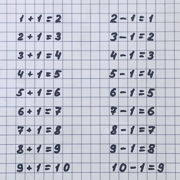 1 + 1 = 2 2 - 1 = 1
2 + 1 = 3 3 - 1 = 2
3 + 1 = 4 4 - 1 = 3
4 + 1 = 5 5 - 1 = 4
5 + 1 = 6 6 - 1 = 5
6 + 1 = 7 7 - 1 = 6
7 + 1 = 8 8 - 1 = 7
8 + 1 = 9 9 - 1 = 8
9 + 1 = 10 10 - 1 = 9